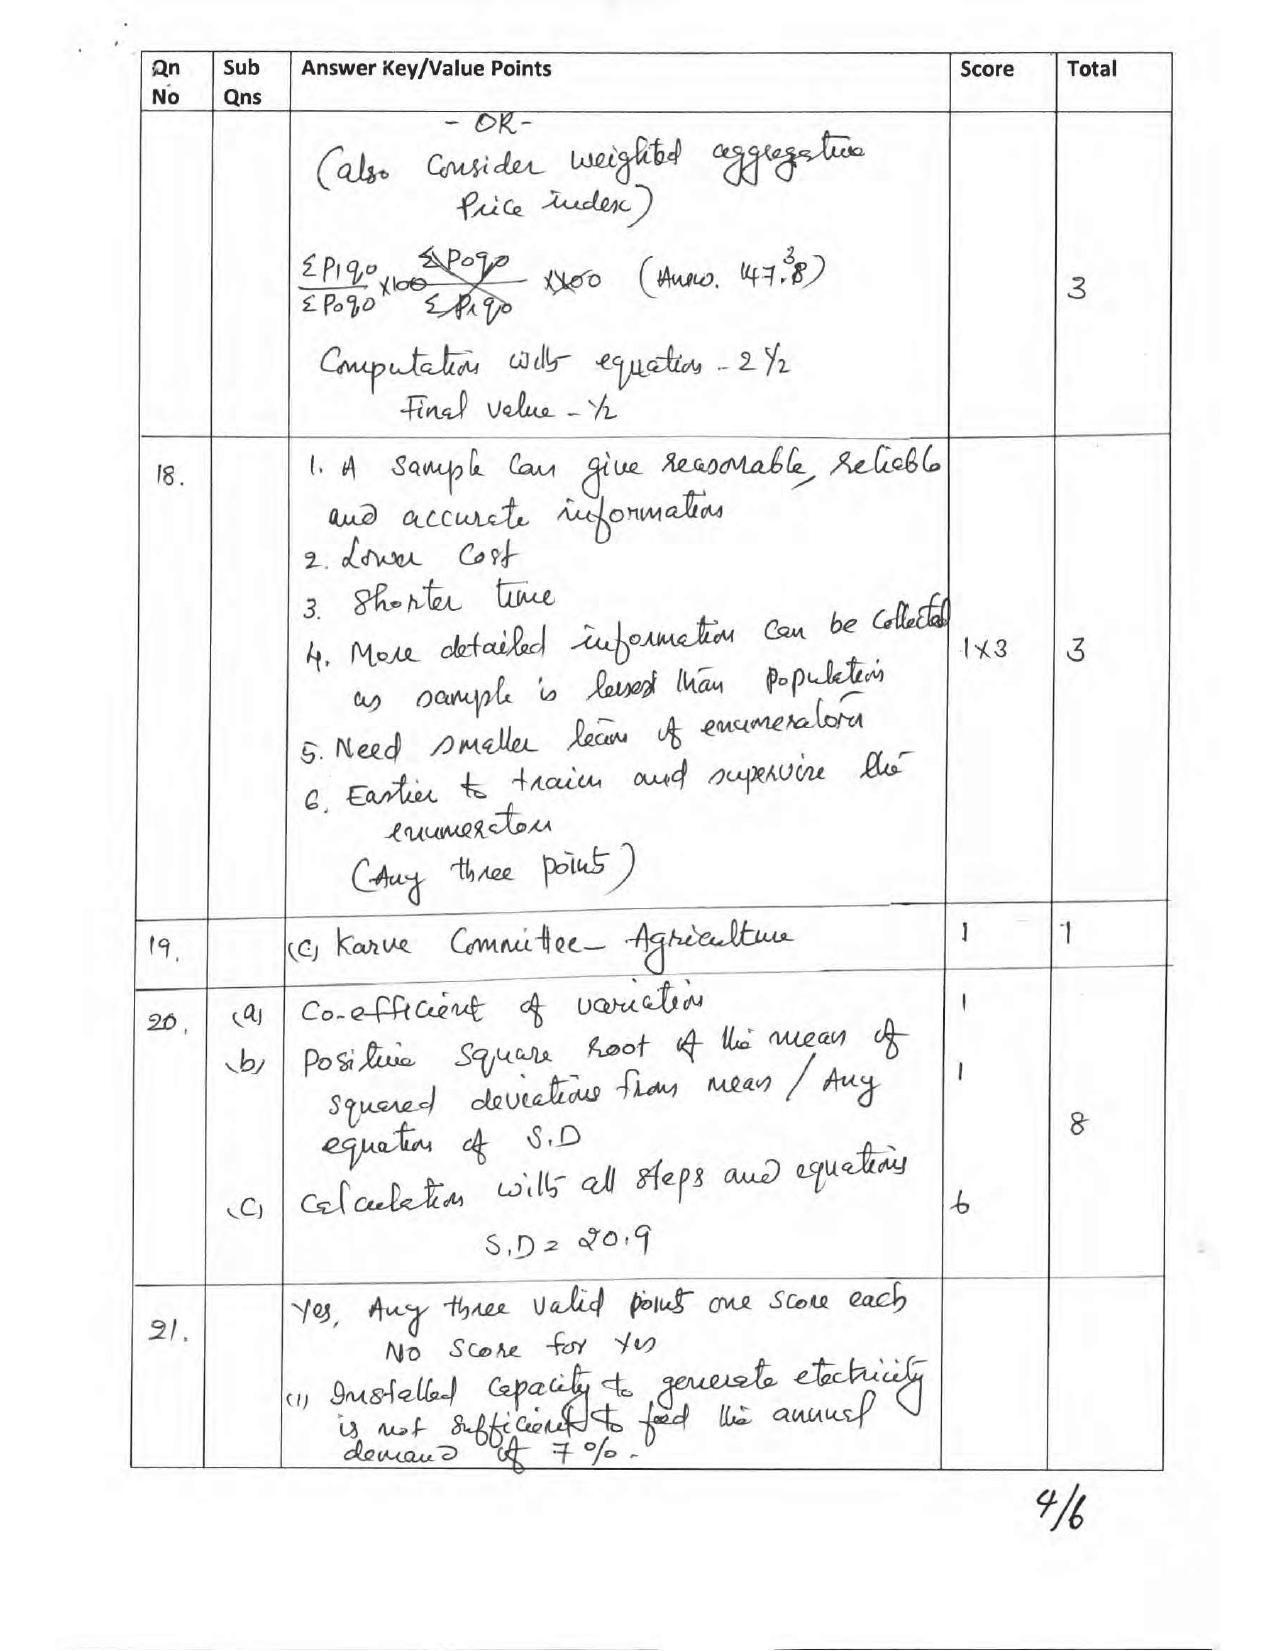 Qn No Sub Qns Answer Key/Value Points Score Total
- OR -
(also Consider weighted aggregative
Price index)
ΣP1q0/ΣP0q0 ×100 (Answ. 147.38)
3
Computation with equation - 2 1/2
Final value - 1/2
18. 1. A sample can give reasonable, reliable
and accurate information
2. Lower cost
3. Shorter time
4. More detailed information can be collected
as sample is lesser than population
1×3 3
5. Need smaller team of enumerators
6. Eastier to train and supervise the
enumerators
(Any three points)
19. (c) Karve Committee - Agriculture 1 1
20. (a) Co-efficient of variation 1
(b) Positive square root of the mean of
squared deviations from mean / Any 1
equation of S.D 8
(c) Calculation with all steps and equations 6
S.D = 20.9
21. Yes, Any three valid points one score each
No score for Yes
(1) Installed capacity to generate electricity
is not sufficient to feed the annual
demand of 7%.
4/6